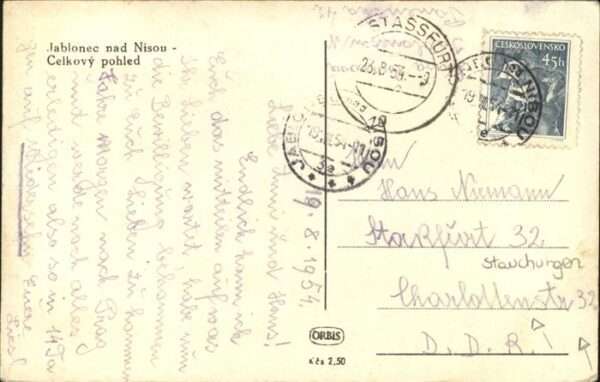 Jablonec nad Nisou -
Celkový pohled
19. 8. 1954.
Liebe Lini und Hans!
Endlich kann ich
Euch das mitteilen auf was
Ihr Lieben wartet, habe nun
die Bewilligung bekommen
zu Euch Lieben zu kommen
fahre morgen nach Prag
und werde noch alles
erledigen also so in 14 Ta
gen auf Wiedersehen Eure
Liesl
STASSFURT
26.8.54.-9
JABLONEC NAD NISOU
19.VIII.54-17
3e
ČESKOSLOVENSKO
45h
Hans Niemann
Staßfurt 32
Stauchungen
Charlottenstr 32
D. D. R. !
ORBIS
Kčs 2,50